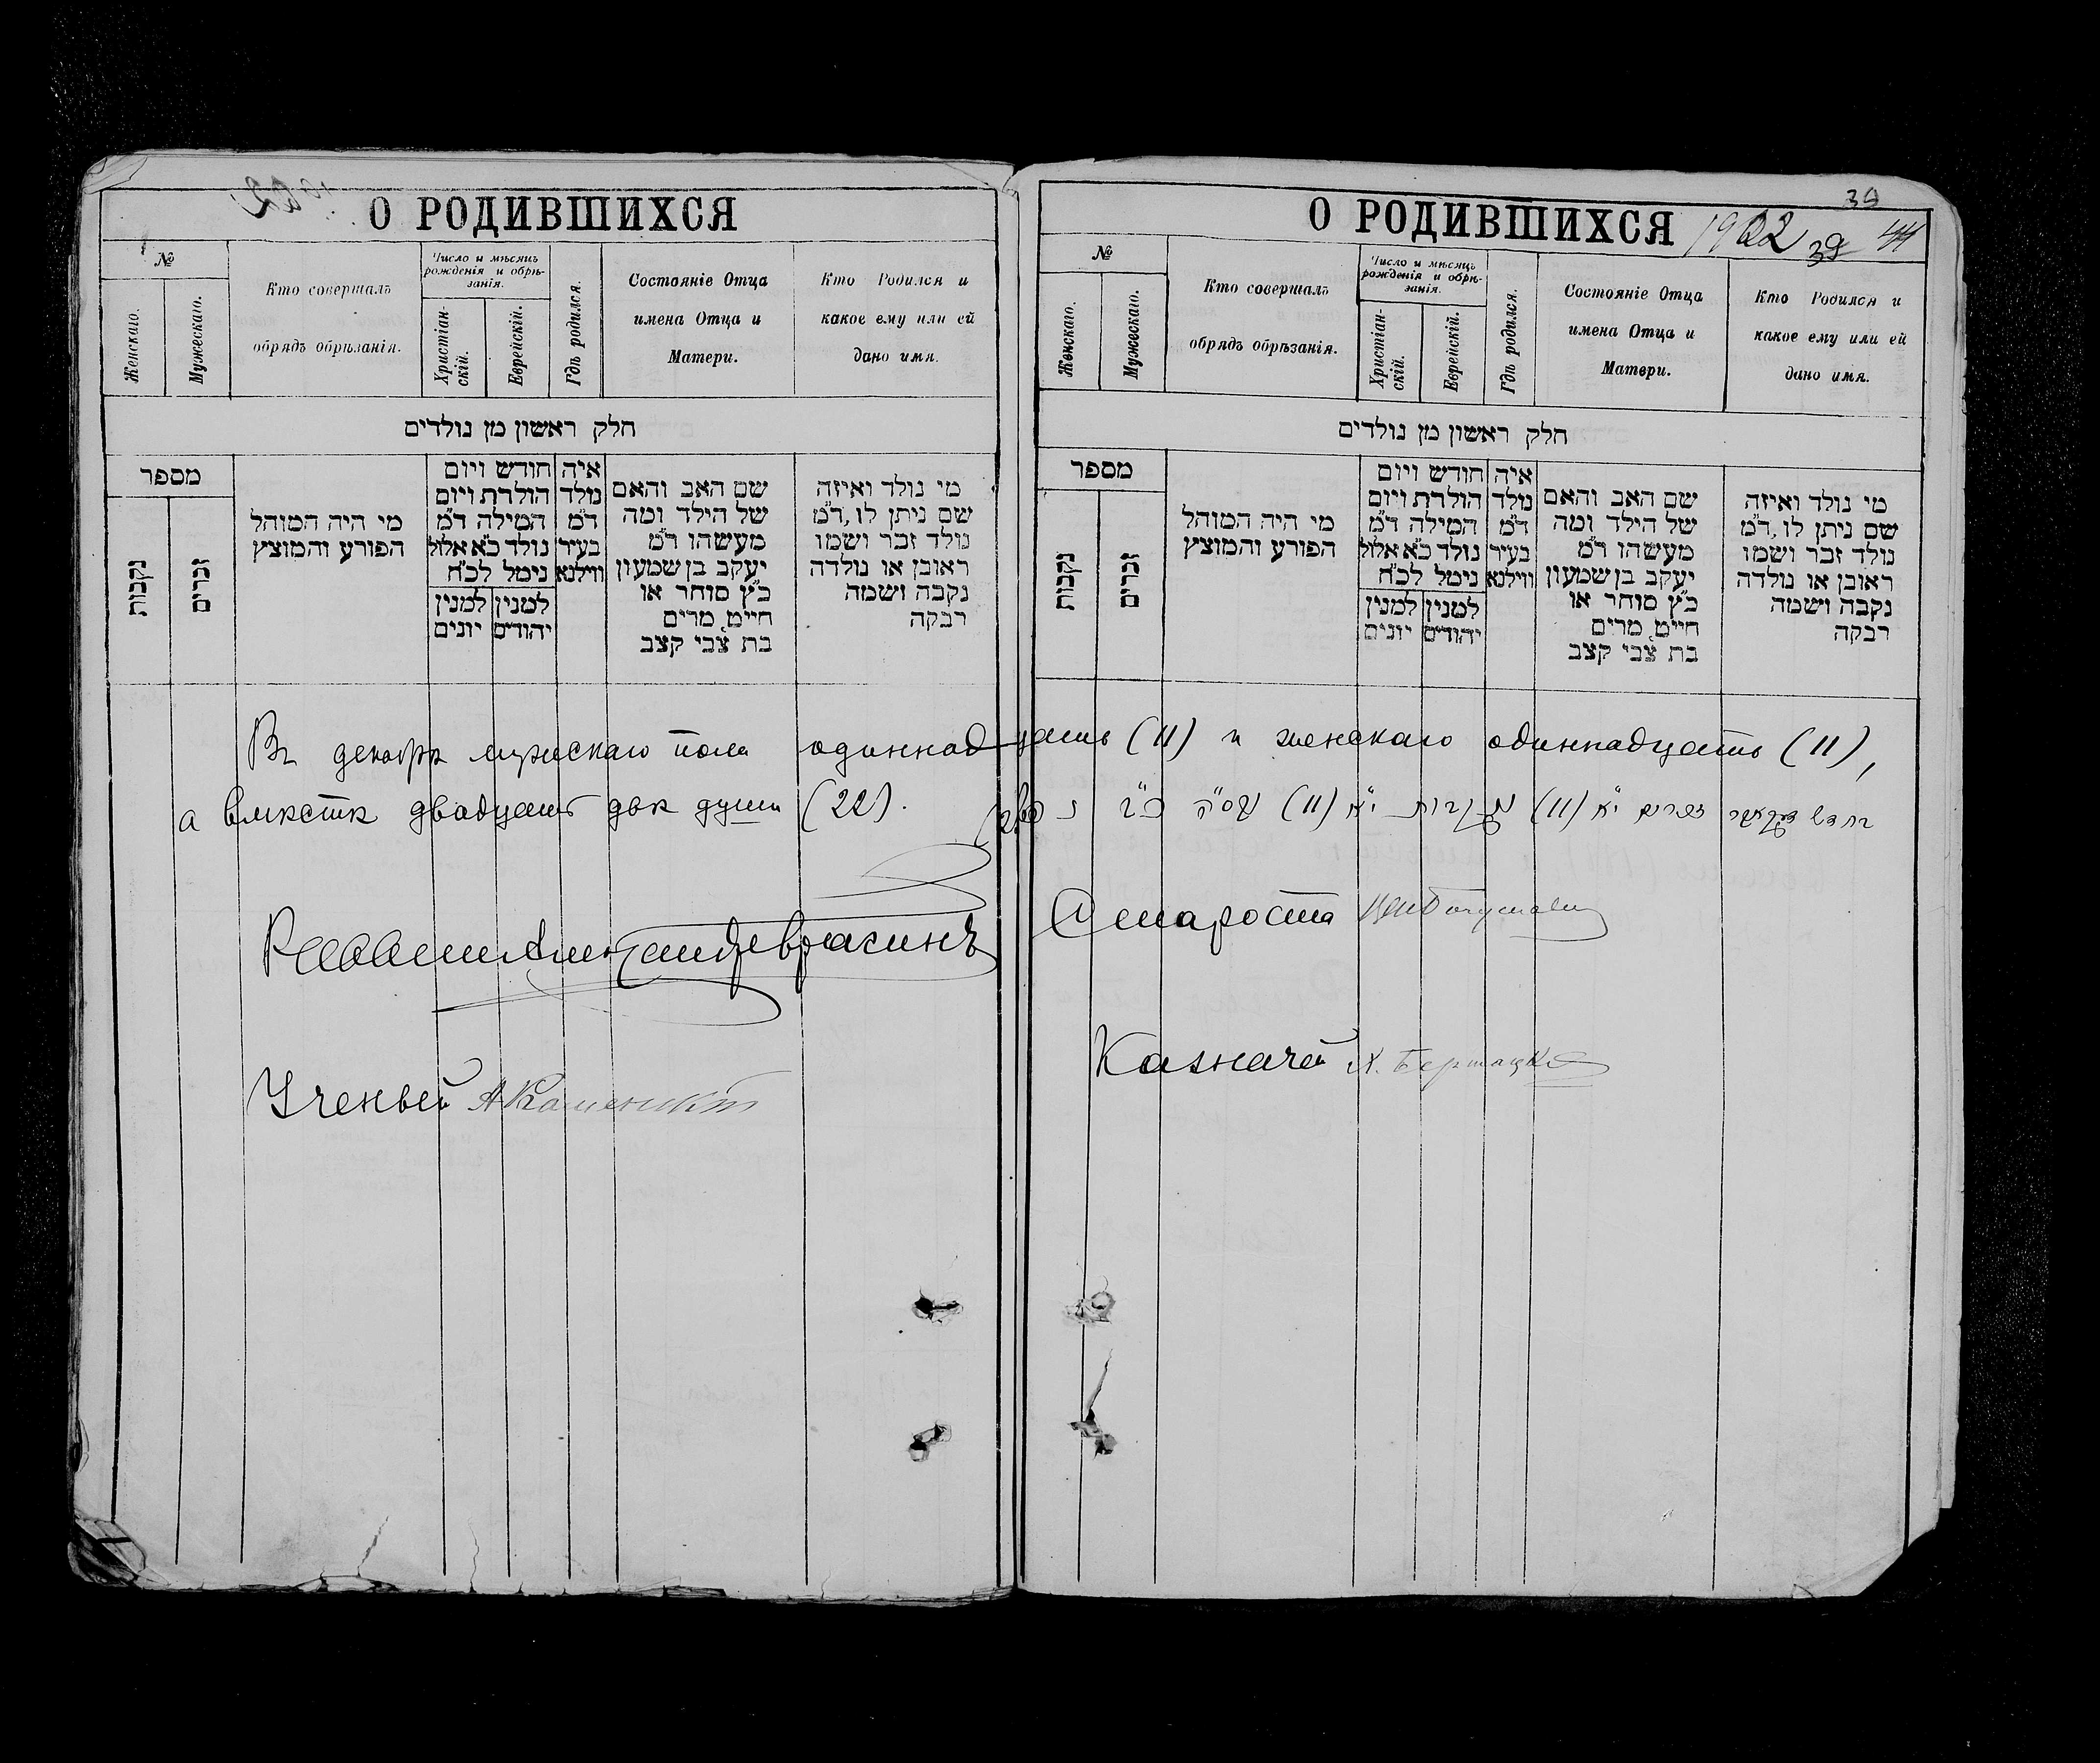 О РОДИВШИХСЯ
№
Женскаго.
Мужескаго.
Кто совершалъ
обрядъ обрѣзанія.
Число и мѣсяцъ
рожденія и обрѣ-
занія.
Христіан-
скій.
Еврейскій.
Гдѣ родился.
Состояніе Отца
имена Отца и
Матери.
Кто Родился и
какое ему или ей
дано имя.
חלק ראשון מן נולדים
מספר
נקבות
זכרים
מי היה המוהל
הפורע והמוצץ
חודש ויום
הולדת ויום
המילה ד"מ
נולד כ"א אלול
נימל לכ"ח
למנין
יונים
למנין
יהודים
איה
נולד
ד"מ
בעיר
ווילנא
שם האב והאם
של הילד ומה
מעשהו ד"מ
יעקב בן שמעון
כ"ץ סוחר או
חייט, מרים
בת צבי קצב
מי נולד ואיזה
שם ניתן לו, ד"מ
נולד זכר ושמו
ראובן או נולדה
נקבה ושמה
רבקה
О РОДИВШИХСЯ 1902
39
39 44
№
Женскаго.
Мужескаго.
Кто совершалъ
обрядъ обрѣзанія.
Число и мѣсяцъ
рожденія и обрѣ-
занія.
Христіан-
скій.
Еврейскій.
Гдѣ родился.
Состояніе Отца
имена Отца и
Матери.
Кто Родился и
какое ему или ей
дано имя.
חלק ראשון מן נולדים
מספר
נקבות
זכרים
מי היה המוהל
הפורע והמוצץ
חודש ויום
הולדת ויום
המילה ד"מ
נולד כ"א אלול
נימל לכ"ח
למנין
יונים
למנין
יהודים
איה
נולד
ד"מ
בעיר
ווילנא
שם האב והאם
של הילד ומה
מעשהו ד"מ
יעקב בן שמעון
כ"ץ סוחר או
חייט, מרים
בת צבי קצב
מי נולד ואיזה
שם ניתן לו, ד"מ
נולד זכר ושמו
ראובן או נולדה
נקבה ושמה
רבקה
Въ декабрѣ мужескаго пола одиннадцать (11) и женскаго одиннадцать (11),
а вмѣстѣ двадцать двѣ души (22).
חדש דעקאבר זכרים י"א (11) נקבות י"א (11) כ"ב
Раввин
Староста
Ученый
Казначей